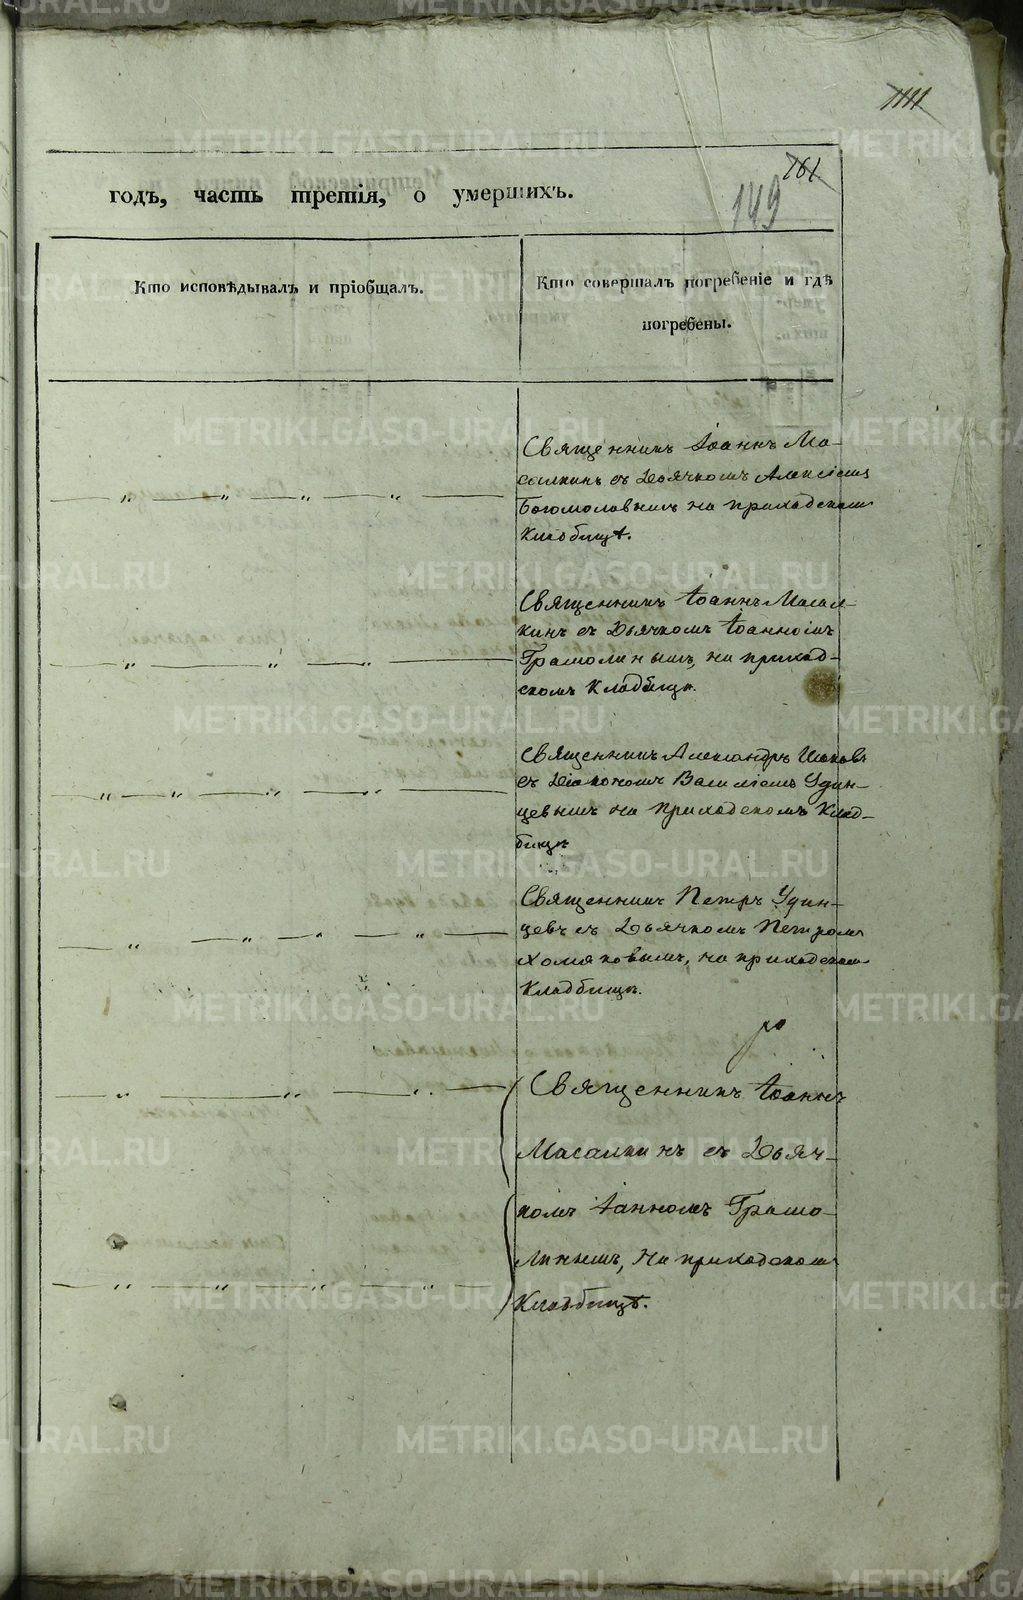 1111
161
149
годъ, часть третія, о умершихъ.
Кто исповѣдывалъ и пріобщалъ.
Кто совершалъ погребеніе и гдѣ
погребены.
Священникъ Іоаннъ Ма-
салкинъ съ Дьячкомъ Алексіемъ
Богомоловымъ на приходскомъ
Кладбищѣ.
Священникъ Іоаннъ Масал-
кинъ съ Дьячкомъ Іоанномъ
Грамолинымъ, на приход-
скомъ Кладбищѣ.
Священникъ Александръ
съ Діакономъ Василіемъ Удин-
цевымъ на Приходскомъ Клад-
бищѣ
Священникъ Петръ Удин-
цевъ съ Дьячкомъ Петромъ
Хомяковымъ, на приходскомъ
Кладбищѣ.
Священникъ Іоаннъ
Масалкинъ съ Дьяч-
комъ Іанномъ Грамо-
линымъ, на приходскомъ
Кладбищѣ.
METRIKI.GASO-URAL.RU